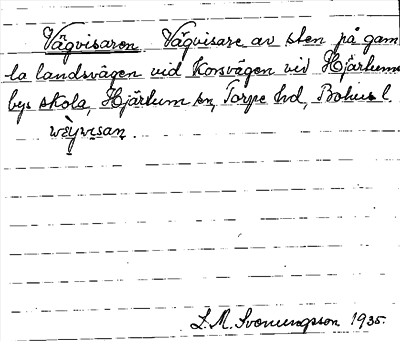 Vägvisaren Vägvisare av sten på gam
la landsvägen vid Korsvägen vid Hjärtums
bys skola, Hjärtum sn, Torpe hd, Bohus l.
wèyvɩsan.
L. M. Svenungsson 1935.